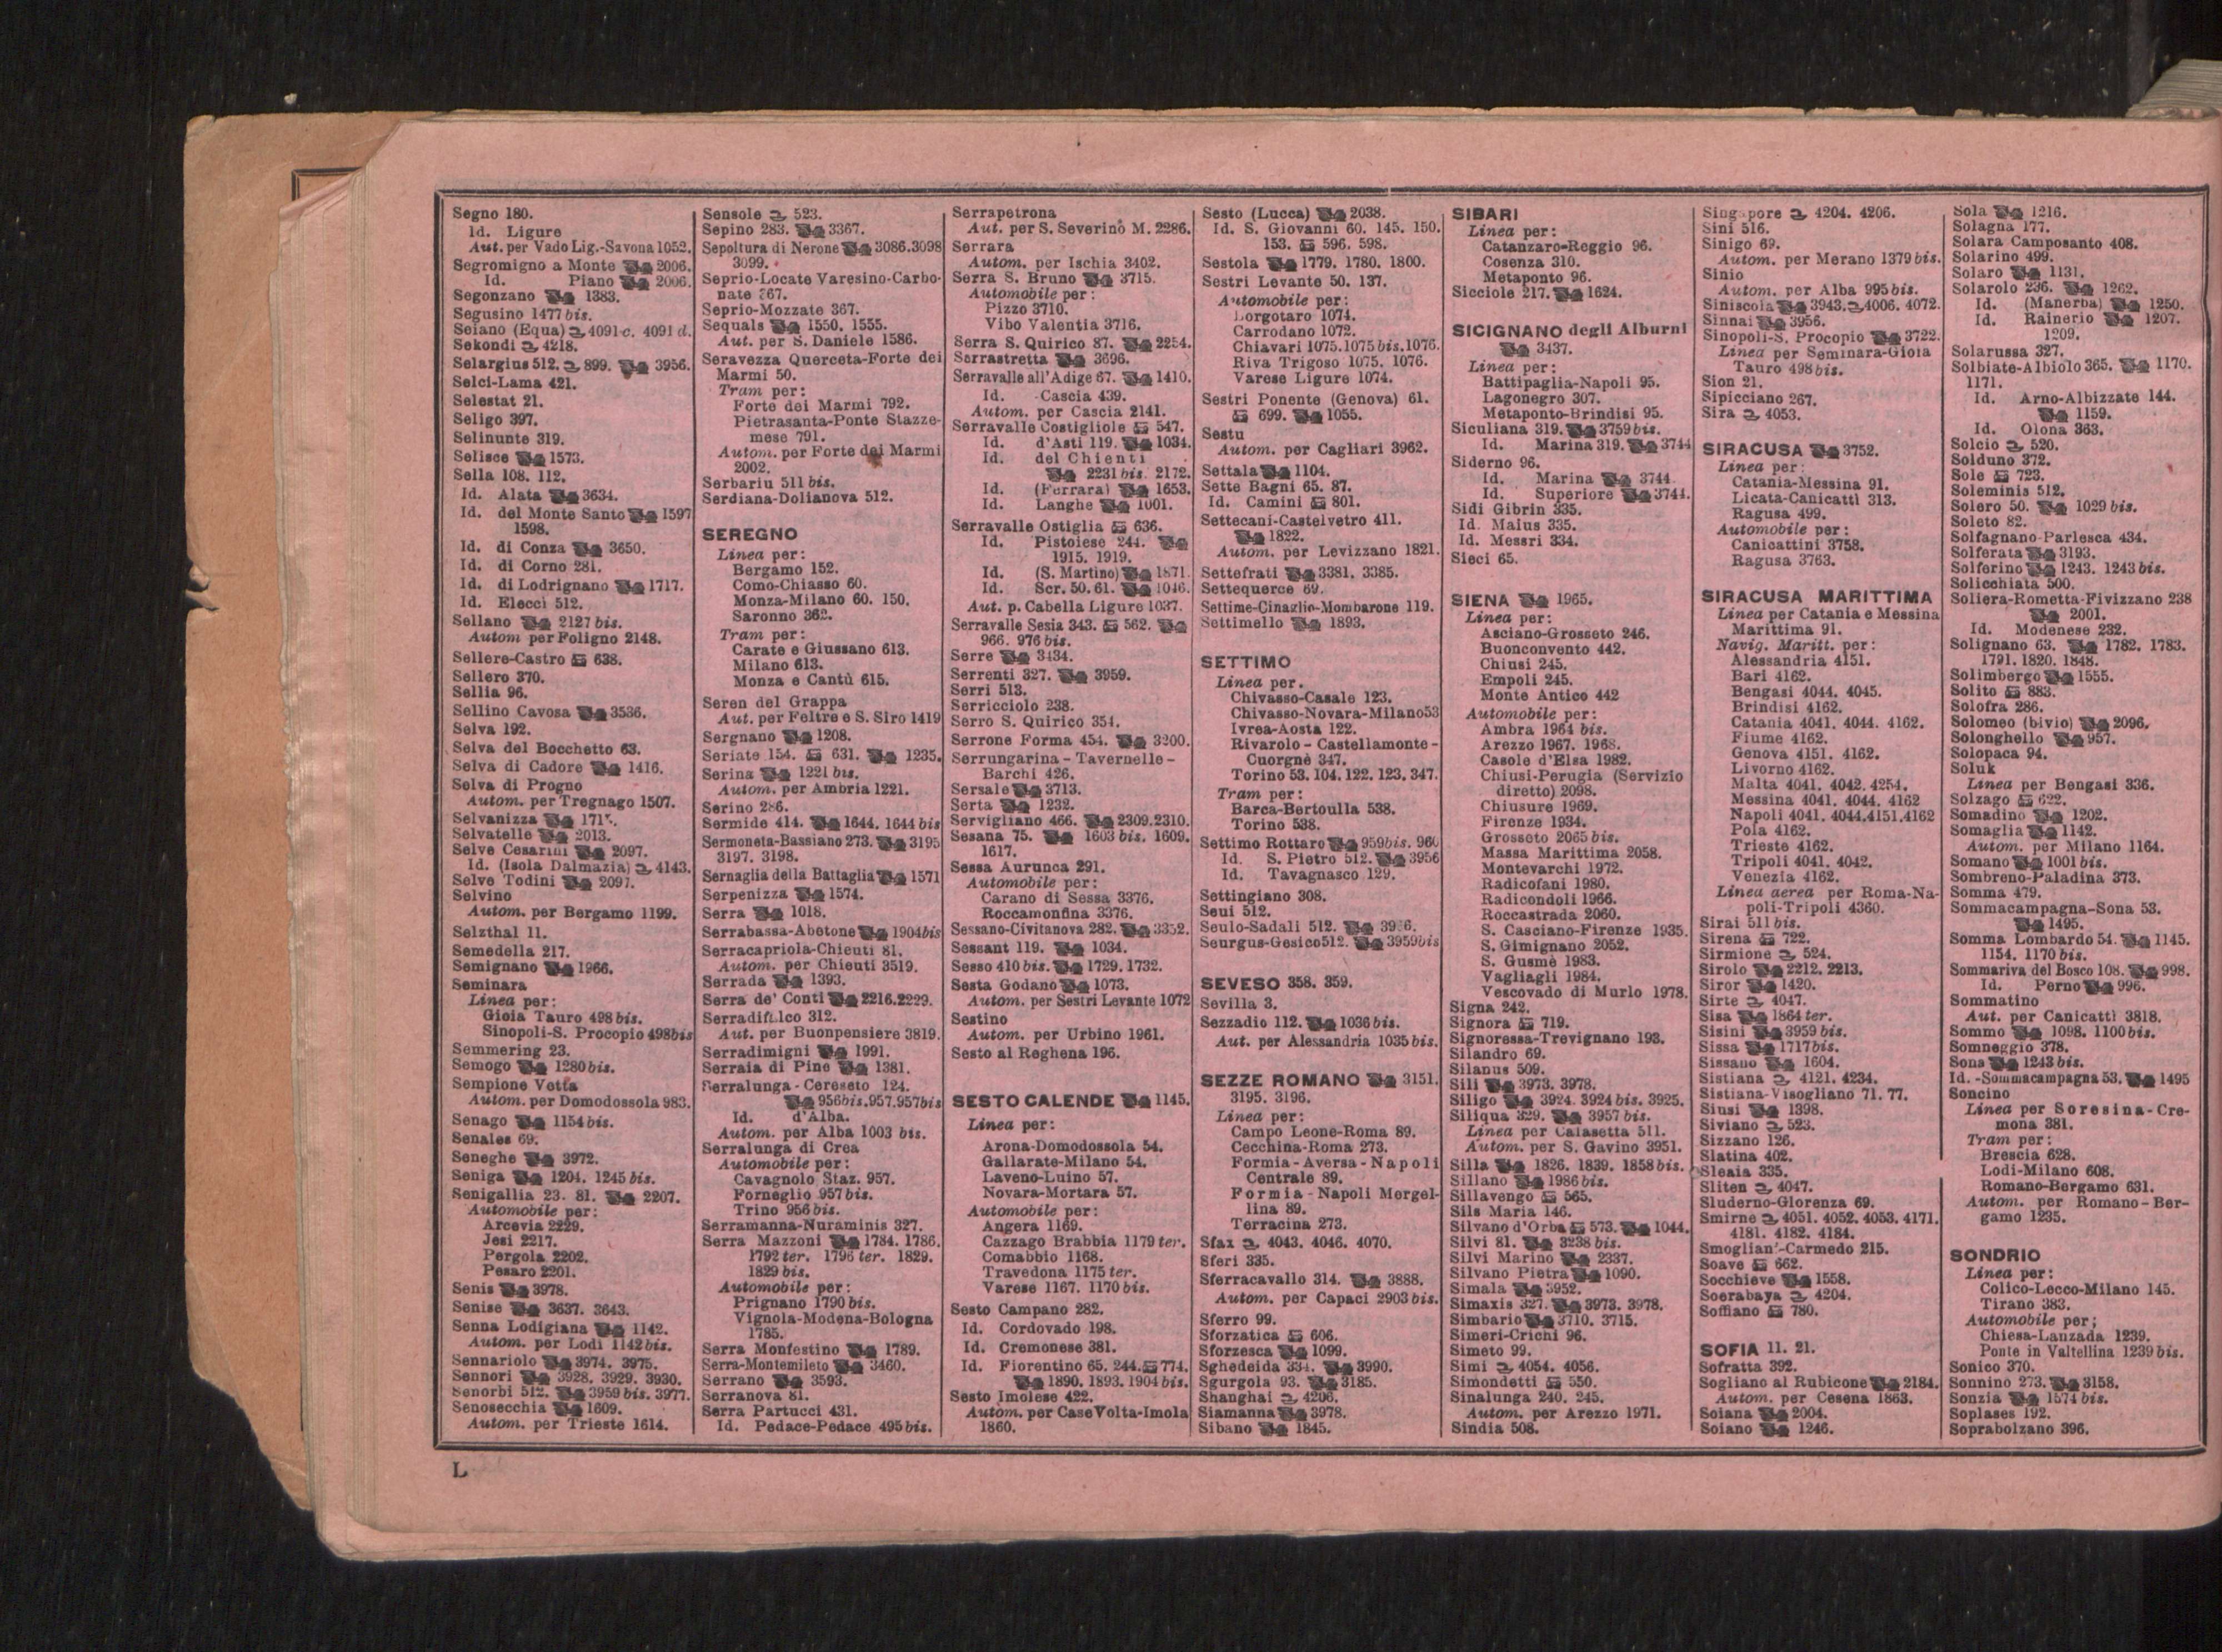 Segno 180.
Id. Ligure
Aut. per Vado Lig.-Savona 1052.
Segromigno a Monte 2006.
Id. Piano 2006.
Segonzano 1383.
Segusino 1477 bis.
Seiano (Equa) 4091 c. 4091 d.
Sekondi 4218.
Selargius 512. 899. 3956.
Selci-Lama 421.
Selestat 21.
Seligo 397.
Selinunte 319.
Selisce 1573.
Sella 108. 112.
Id. Alata 3634.
Id. del Monte Santo 1597
1598.
Id. di Conza 3650.
Id. di Corno 281.
Id. di Lodrignano 1717.
Id. Elecci 512.
Sellano 2127 bis.
Autom per Foligno 2148.
Sellere-Castro 638.
Sellero 370.
Sellia 96.
Sellino Cavosa 3536.
Selva 192.
Selva del Bocchetto 63.
Selva di Cadore 1416.
Selva di Progno
Autom. per Tregnago 1507.
Selvanizza
Selvatelle 2013.
Selve Cesarini 2097.
Id. (Isola Dalmazia) 4143.
Selve Todini 2097.
Selvino
Autom. per Bergamo 1199.
Selzthal 11.
Semedella 217.
Semignano 1966.
Seminara
Linea per:
Gioia Tauro 498 bis.
Sinopoli-S. Procopio 498 bis
Semmering 23.
Semogo 1280 bis.
Sempione Vetta
Autom. per Domodossola 983.
Senago 1154 bis.
Senales 69.
Seneghe 3972.
Seniga 1204. 1245 bis.
Senigallia 23. 81. 2207.
Automobile per:
Arcevia 2229.
Jesi 2217.
Pergola 2202.
Pesaro 2201.
Senis 3978.
Senise 3637. 3643.
Senna Lodigiana 1142.
Autom. per Lodi 1142 bis.
Sennariolo 3974. 3975.
Sennori 3928. 3929. 3930.
Senorbi 512. 3959 bis. 3977.
Senosecchia 1609.
Autom. per Trieste 1614.
Sensole 523.
Sepino 283. 3367.
Sepoltura di Nerone 3086.3098
3099.
Seprio-Locate Varesino-Carbo-
nate 367.
Seprio-Mozzate 367.
Sequals 1550. 1555.
Aut. per S. Daniele 1586.
Seravezza Querceta-Forte dei
Marmi 50.
Tram per:
Forte dei Marmi 792.
Pietrasanta-Ponte Stazze-
mese 791.
Autom. per Forte dei Marmi
2002.
Serbariu 511 bis.
Serdiana-Dolianova 512.
SEREGNO
Linea per:
Bergamo 152.
Como-Chiasso 60.
Monza-Milano 60. 150.
Saronno 362.
Tram per:
Carate e Giussano 613.
Milano 613.
Monza e Cantù 615.
Seren del Grappa
Aut. per Feltre e S. Siro 1419
Sergnano 1208.
Seriate 154. 631. 1235.
Serina 1221 bis.
Autom. per Ambria 1221.
Serino 286.
Sermide 414. 1644. 1644 bis
Sermoneta-Bassiano 273. 3195
3197. 3198.
Sernaglia della Battaglia 1571
Serpenizza 1574.
Serra 1018.
Serrabassa-Abetone 1904 bis
Serracapriola-Chieuti 81.
Autom. per Chieuti 3519.
Serrada 1393.
Serra de' Conti 2216.2229.
Serradifalco 312.
Aut. per Buonpensiere 3819.
Serradimigni 1991.
Serraia di Pine 1381.
Serralunga-Cereseto 124.
956bis.957.957bis
Id. d'Alba.
Autom. per Alba 1003 bis.
Serralunga di Crea
Automobile per:
Cavagnolo Staz. 957.
Forneglio 957 bis.
Trino 956 bis.
Serramanna-Nuraminis 327.
Serra Mazzoni 1784. 1786.
1792 ter. 1796 ter. 1829.
1829 bis.
Automobile per:
Prignano 1790 bis.
Vignola-Modena-Bologna
1785.
Serra Monfestino 1789.
Serra-Montemileto 3460.
Serrano 3593.
Serranova 81.
Serra Partucci 431.
Id. Pedace-Pedace 495 bis.
Serrapetrona
Aut. per S. Severino M. 2286.
Serrara
Autom. per Ischia 3402.
Serra S. Bruno 3715.
Automobile per:
Pizzo 3710.
Vibo Valentia 3716.
Serra S. Quirico 87. 2254.
Serrastretta 3696.
Serravalle all'Adige 67. 1410.
Id. Cascia 439.
Autom. per Cascia 2141.
Serravalle Costigliole 547.
Id. d'Asti 119. 1034.
Id. del Chienti
2231 bis. 2172.
Id. (Ferrara) 1653.
Id. Langhe 1001.
Serravalle Ostiglia 636.
Id. Pistoiese 244.
1915. 1919.
Id. (S. Martino) 1871.
Id. Scr. 50. 61. 1046.
Aut. p. Cabella Ligure 1037.
Serravalle Sesia 343. 562.
966. 976 bis.
Serre 3434.
Serrenti 327. 3959.
Serri 513.
Serricciolo 238.
Serro S. Quirico 354.
Serrone Forma 454. 3200.
Serrungarina-Tavernelle-
Barchi 426.
Sersale 3713.
Serta 1232.
Servigliano 466. 2309.2310.
Sesana 75. 1603 bis. 1609.
1617.
Sessa Aurunca 291.
Automobile per:
Carano di Sessa 3376.
Roccamonfina 3376.
Sessano-Civitanova 282. 3352.
Sessant 119. 1034.
Sesso 410 bis. 1729. 1732.
Sesta Godano 1073.
Autom. per Sestri Levante 1072
Sestino
Autom. per Urbino 1961.
Sesto al Reghena 196.
SESTO CALENDE 1145.
Linea per:
Arona-Domodossola 54.
Gallarate-Milano 54.
Laveno-Luino 57.
Novara-Mortara 57.
Automobile per:
Angera 1169.
Cazzago Brabbia 1179 ter.
Comabbio 1168.
Travedona 1175 ter.
Varese 1167. 1170 bis.
Sesto Campano 282.
Id. Cordovado 198.
Id. Cremonese 381.
Id. Fiorentino 65. 244. 774.
1890. 1893. 1904 bis.
Sesto Imolese 422.
Autom. per Case Volta-Imola
1860.
Sesto (Lucca) 2038.
Id. S. Giovanni 60. 145. 150.
153. 596. 598.
Sestola 1779. 1780. 1800.
Sestri Levante 50. 137.
Automobile per:
Borgotaro 1074.
Carrodano 1072.
Chiavari 1075.1075 bis.1076.
Riva Trigoso 1075. 1076.
Varese Ligure 1074.
Sestri Ponente (Genova) 61.
699. 1055.
Sestu
Autom. per Cagliari 3962.
Settala 1104.
Sette Bagni 65. 87.
Id. Camini 801.
Settecani-Castelvetro 411.
1822.
Autom. per Levizzano 1821.
Settefrati 3381. 3385.
Settequerce 69.
Settime-Cinaglio-Mombarone 119.
Settimello 1893.
SETTIMO
Linea per.
Chivasso-Casale 123.
Chivasso-Novara-Milano53
Ivrea-Aosta 122.
Rivarolo-Castellamonte-
Cuorgnè 347.
Torino 53. 104. 122. 123. 347.
Tram per:
Barca-Bertoulla 538.
Torino 538.
Settimo Rottaro 959bis. 960
Id. S. Pietro 512. 3956
Id. Tavagnasco 129.
Settingiano 308.
Seui 512.
Seulo-Sadali 512.
Seurgus-Gesico512. 3959bis
SEVESO 358. 359.
Sevilla 3.
Sezzadio 112. 1036 bis.
Aut. per Alessandria 1035 bis.
SEZZE ROMANO 3151.
3195. 3196.
Linea per:
Campo Leone-Roma 89.
Cecchina-Roma 273.
Formia-Aversa-Napoli
Centrale 89.
Formia-Napoli Mergel-
lina 89.
Terracina 273.
Sfax 4043. 4046. 4070.
Sferi 335.
Sferracavallo 314. 3888.
Autom. per Capaci 2903 bis.
Sferro 99.
Sforzatica 606.
Sforzesca 1099.
Sghedeida 334. 3990.
Sgurgola 93. 3185.
Shanghai 4206.
Siamanna 3978.
Sibano 1845.
SIBARI
Linea per:
Catanzaro-Reggio 96.
Cosenza 310.
Metaponto 96.
Sicciole 217. 1624.
SICIGNANO degli Alburni
3437.
Linea per:
Battipaglia-Napoli 95.
Lagonegro 307.
Metaponto-Brindisi 95.
Siculiana 319. 3759 bis.
Id. Marina 319. 3744
Siderno 96.
Id. Marina 3744
Id. Superiore 3744.
Sidi Gibrin 335.
Id. Maius 335.
Id. Messri 334.
Sieci 65.
SIENA 1965.
Linea per:
Asciano-Grosseto 246.
Buonconvento 442.
Chiusi 245.
Empoli 245.
Monte Antico 442
Automobile per:
Ambra 1964 bis.
Arezzo 1967. 1968.
Casole d'Elsa 1982.
Chiusi-Perugia (Servizio
diretto) 2098.
Chiusure 1969.
Firenze 1934.
Grosseto 2065 bis.
Massa Marittima 2058.
Montevarchi 1972.
Radicofani 1980.
Radicondoli 1966.
Roccastrada 2060.
S. Casciano-Firenze 1935.
S. Gimignano 2052.
S. Gusmè 1983.
Vagliagli 1984.
Vescovado di Murlo 1978.
Signa 242.
Signora 719.
Signoressa-Trevignano 193.
Silandro 69.
Silanus 509.
Sili 3973. 3978.
Siligo 3924. 3924 bis. 3925.
Siliqua 329. 3957 bis.
Linea per Calasetta 511.
Autom. per S. Gavino 3951.
Silla 1826. 1839. 1858 bis.
Sillano 1986 bis.
Sillavengo 565.
Sils Maria 146.
Silvano d'Orba 573. 1044.
Silvi 81. 3238 bis.
Silvi Marino 2337.
Silvano Pietra 1090.
Simala 3952.
Simaxis 327. 3973. 3978.
Simbario 3710. 3715.
Simeri-Crichi 96.
Simeto 99.
Simi 4054. 4056.
Simondetti 550.
Sinalunga 240. 245.
Autom. per Arezzo 1971.
Sindia 508.
Singapore 4204. 4206.
Sini 516.
Sinigo 69.
Autom. per Merano 1379 bis.
Sinio
Autom. per Alba 995 bis.
Siniscola 3943. 4006. 4072.
Sinnai 3956.
Sinopoli-S. Procopio 3722.
Linea per Seminara-Gioia
Tauro 498 bis.
Sion 21.
Sipicciano 267.
Sira 4053.
SIRACUSA 3752.
Linea per:
Catania-Messina 91.
Licata-Canicattì 313.
Ragusa 499.
Automobile per:
Canicattini 3758.
Ragusa 3763.
SIRACUSA MARITTIMA
Linea per Catania e Messina
Marittima 91.
Navig. Maritt. per:
Alessandria 4151.
Bari 4162.
Bengasi 4044. 4045.
Brindisi 4162.
Catania 4041. 4044. 4162.
Fiume 4162.
Genova 4151. 4162.
Livorno 4162.
Malta 4041. 4042. 4254.
Messina 4041. 4044. 4162
Napoli 4041. 4044.4151.4162
Pola 4162.
Trieste 4162.
Tripoli 4041. 4042.
Venezia 4162.
Linea aerea per Roma-Na-
poli-Tripoli 4360.
Sirai 511 bis.
Sirena 722.
Sirmione 524.
Sirolo 2212. 2213.
Siror 1420.
Sirte 4047.
Sisa 1864 ter.
Sisini 3959 bis.
Sissa 1717 bis.
Sissano 1604.
Sistiana 4121. 4234.
Sistiana-Visogliano 71. 77.
Siusi 1398.
Siviano 523.
Sizzano 126.
Slatina 402.
Sleaia 335.
Sliten 4047.
Sluderno-Glorenza 69.
Smirne 4051. 4052. 4053. 4171.
4181. 4182. 4184.
Smoglian'-Carmedo 215.
Soave 662.
Socchieve 1558.
Soerabaya 4204.
Soffiano 780.
SOFIA 11. 21.
Sofratta 392.
Sogliano al Rubicone 2184.
Autom. per Cesena 1863.
Soiana 2004.
Soiano 1246.
Sola 1216.
Solagna 177.
Solara Camposanto 408.
Solarino 499.
Solaro 1131.
Solarolo 236. 1262.
Id. (Manerba) 1250.
Id. Rainerio 1207.
1209.
Solarussa 327.
Solbiate-Albiolo 365. 1170.
1171.
Id. Arno-Albizzate 144.
1159.
Id. Olona 363.
Solcio 520.
Solduno 372.
Sole 723.
Soleminis 512.
Solero 50. 1029 bis.
Soleto 82.
Solfagnano-Parlesca 434.
Solferata 3193.
Solferino 1243. 1243 bis.
Solicchiata 500.
Soliera-Rometta-Fivizzano 238
2001.
Id. Modenese 232.
Solignano 63. 1782. 1783.
1791. 1820. 1848.
Solimbergo 1555.
Solito 883.
Solofra 286.
Solomeo (bivio) 2096.
Solonghello 957.
Solopaca 94.
Soluk
Linea per Bengasi 336.
Solzago 622.
Somadino 1202.
Somaglia 1142.
Autom. per Milano 1164.
Somano 1001 bis.
Sombreno-Paladina 373.
Somma 479.
Sommacampagna-Sona 53.
1495.
Somma Lombardo 54. 1145.
1154. 1170 bis.
Sommariva del Bosco 108. 998.
Id. Perno 996.
Sommatino
Aut. per Canicattì 3818.
Sommo 1098. 1100 bis.
Somneggio 378.
Sona 1243 bis.
Id.-Sommacampagna 53. 1495
Soncino
Linea per Soresina-Cre-
mona 381.
Tram per:
Brescia 628.
Lodi-Milano 608.
Romano-Bergamo 631.
Autom. per Romano-Ber-
gamo 1235.
SONDRIO
Linea per:
Colico-Lecco-Milano 145.
Tirano 383.
Automobile per;
Chiesa-Lanzada 1239.
Ponte in Valtellina 1239 bis.
Sonico 370.
Sonnino 273. 3158.
Sonzia 1574 bis.
Soplases 192.
Soprabolzano 396.
L